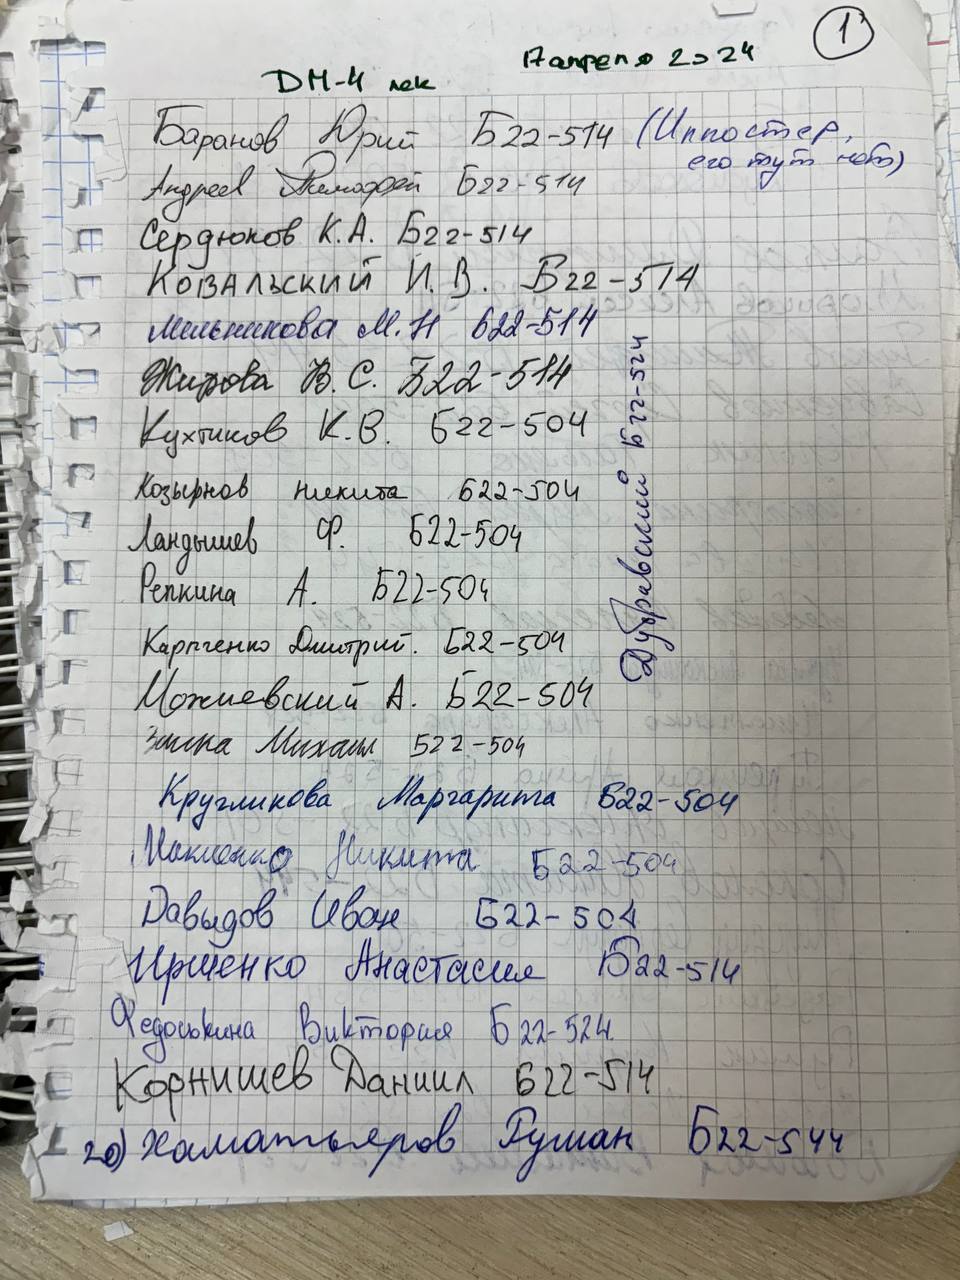 1
ДМ-4 лек 17 апреля 2024
Баранов Юрий Б22-514 (Импостер,
его тут нет)
Андреев Тимофей Б22-514
Сердюков К.А. Б22-514
Ковальский И.В. Б22-514
Мельникова М.Н Б22-514
Жирова В.С. Б22-514
Кухтиков К.В. Б22-504
Козырнов Никита Б22-504
Ландышев Ф. Б22-504
Репкина А. Б22-504
Карпченко Дмитрий. Б22-504
Можиевский А. Б22-504
Михаил Б22-504
Кругликова Маргарита Б22-504
Никита Б22-504
Давыдов Иван Б22-504
Ирженко Анастасия Б22-514
Федоськина Виктория Б22-524
Корнишев Даниил Б22-514
20) Хаматьяров Рушан Б22-544
Дубравский Б22-524